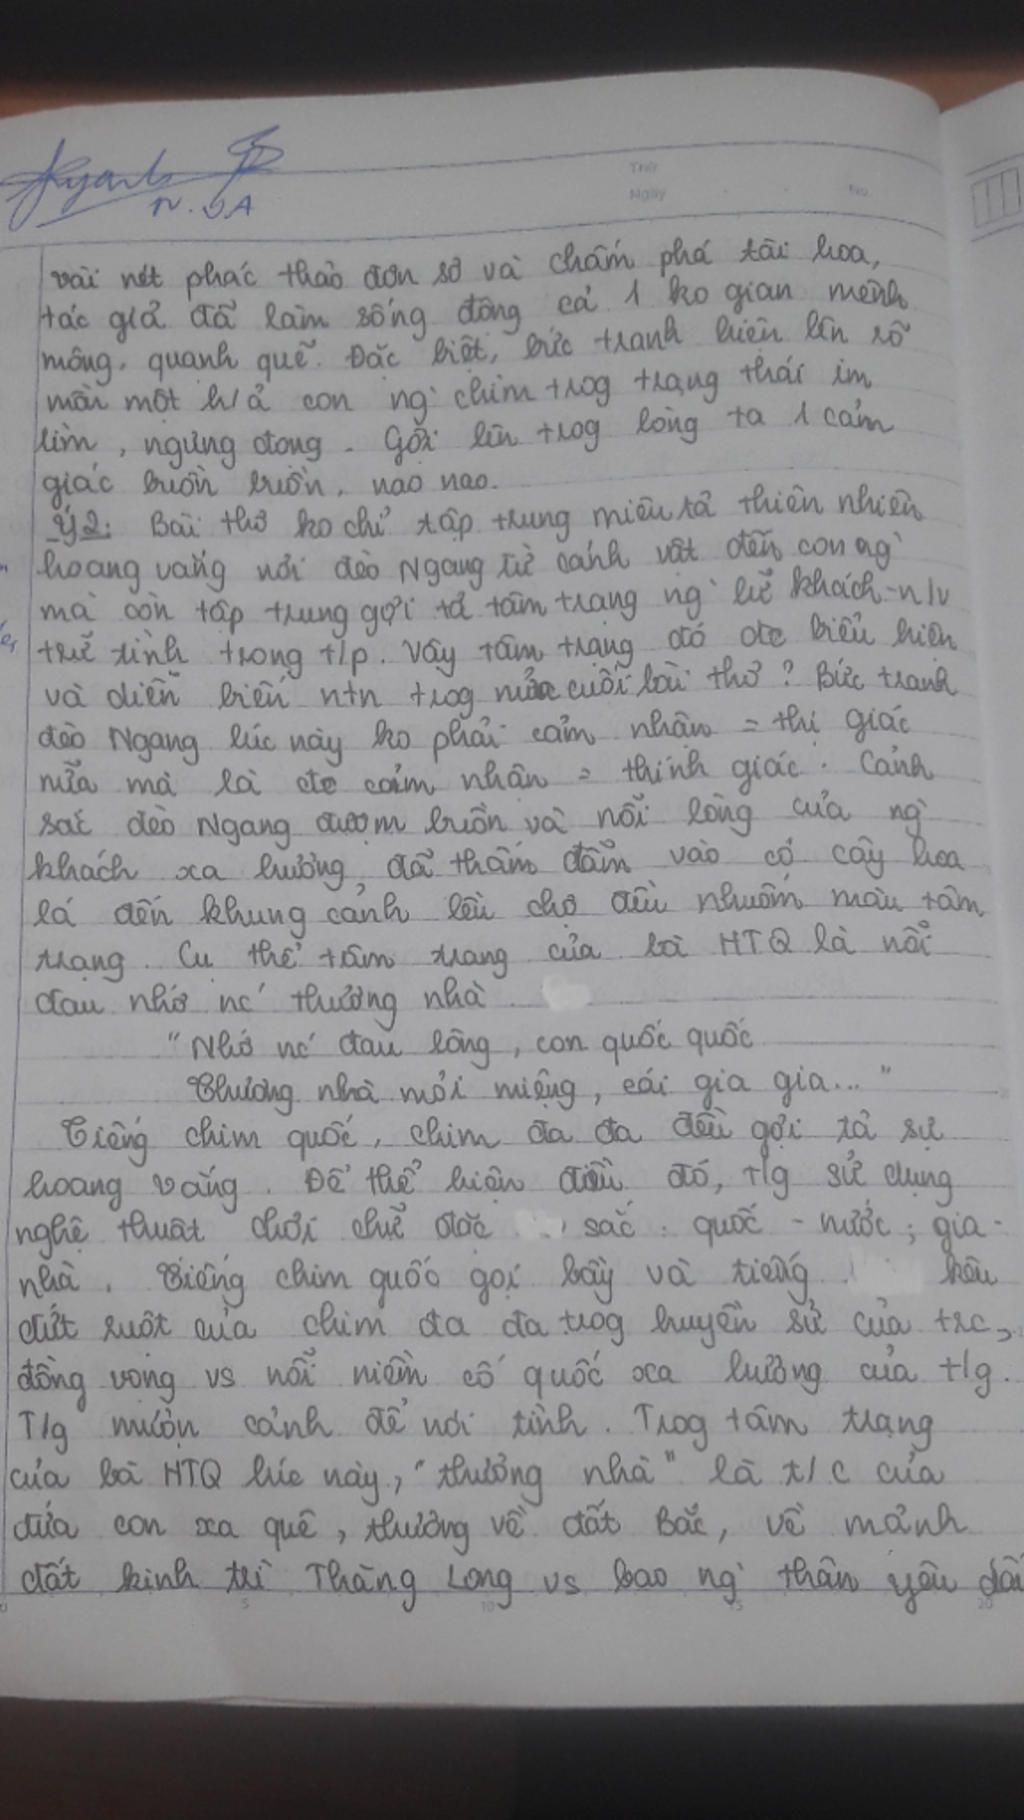 N.J.A
Thứ
Ngày
No.
vài nét phác thảo đơn sơ và chấm phá tài hoa,
tác giả đã làm sống động cả 1 ko gian mênh
mông, quạnh quẽ. Đặc biệt, bức tranh hiện lên rõ
mồn một h/ả con ng` chìm trog trạng thái im
lìm, ngưng đọng. Gợi lên trog lòng ta 1 cảm
giác buồn buồn, nao nao.
Ý2: Bài thơ ko chỉ tập trung miêu tả thiên nhiên
hoang vắng nơi đèo Ngang từ cảnh vật đến con ng`
mà còn tập trung gợi tả tâm trạng ng` lữ khách - n/v
trữ tình trong t/p. Vậy tâm trạng đó đc biểu hiện
và diễn biến ntn trog nửa cuối bài thơ? Bức tranh
đèo Ngang lúc này ko phải cảm nhận = thị giác
nữa mà là đc cảm nhận = thính giác. Cảnh
sắc đèo Ngang đượm buồn và nỗi lòng của ng`
khách xa hương, đã thấm đẫm vào cỏ cây hoa
lá đến khung cảnh lều chợ đều nhuốm màu tâm
trạng. Cụ thể tâm trạng của bà HTQ là nỗi
đau nhớ nc´ thương nhà
"Nhớ nc´ đau lòng, con quốc quốc
Thương nhà mỏi miệng, cái gia gia..."
Tiếng chim quốc, chim đa đa đều gợi tả sự
hoang vắng. Để thể hiện điều đó, t/g sử dụng
nghệ thuật chơi chữ đặc sắc: quốc - nước; gia -
nhà. Tiếng chim quốc gọi bầy và tiếng kêu
đứt ruột của chim đa đa trog huyền sử của trc,
đồng vọng vs nỗi niềm cố quốc xa hương của t/g.
T/g mượn cảnh để nói tình. Trog tâm trạng
của bà HTQ lúc này, "thương nhà" là t/c của
đứa con xa quê, thương về đất Bắc, về mảnh
đất kinh kì Thăng Long vs bao ng` thân yêu
5
10
15
20